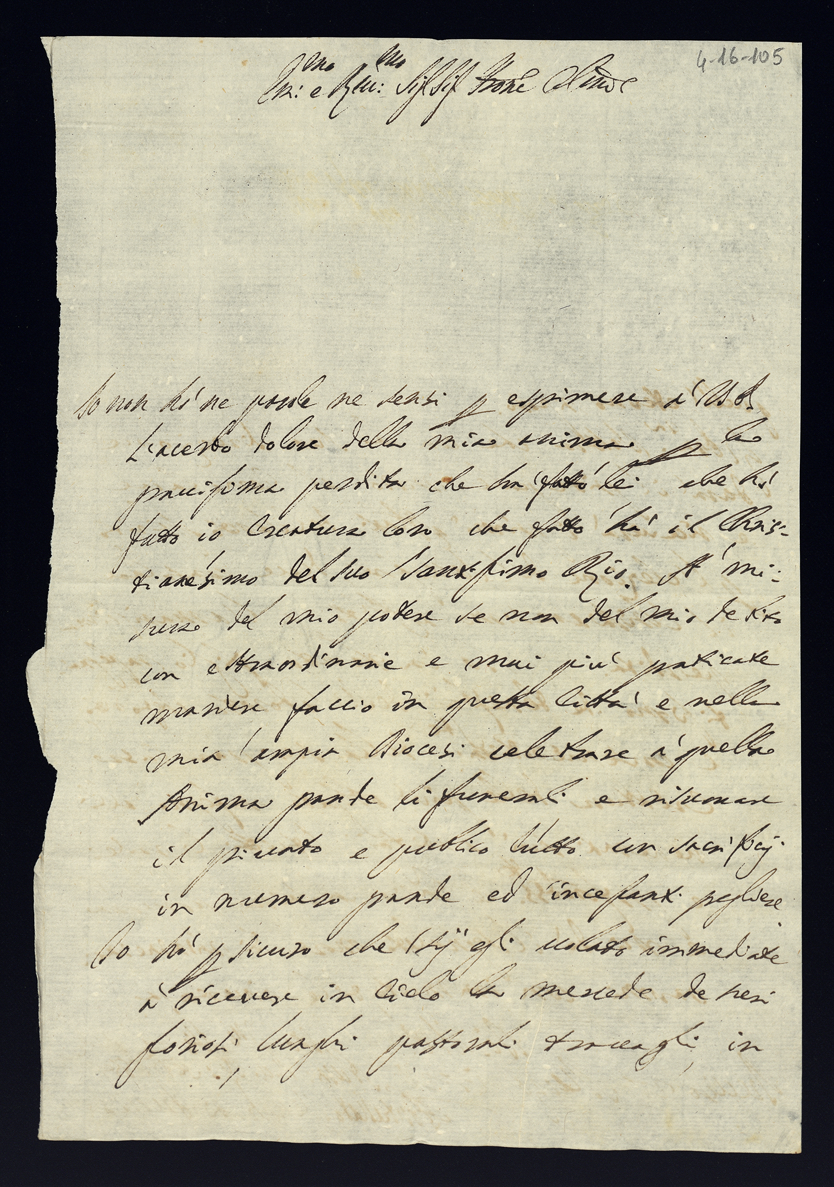 4-16-105
Em:mo e Rev:mo Sig Sig Prone
Io non hò ne parole ne sensi p esprimere à
L'acerbo dolore della mia anima p la
gravissima perdita che hà fatto lei che hò
fatto io Creatura loro che fatto hà il Chris-
tianesimo del suo Santissimo Pio. A mi-
sura del mio potere se non del mio debito
con estraordinarie e mai più praticate
maniere faccio in questa Città e nella
mia ampia Diocesi celebrare à quella
Anima grande li funerali e risonare
il privato e publico lutto con sacrificij
in numero grande ed incessanti preghiere
Io hò p sicuro che sij egli volato immediate
à ricevere in Cielo la mercede de suoi
gloriosi, lunghi pastorali travagli, in